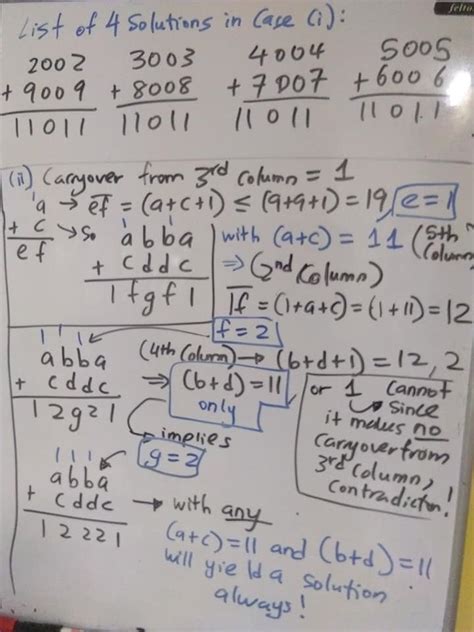 List of 4 Solutions in Case (i):
2002
+ 9009
11011
3003
+ 8008
11011
4004
+ 7007
11011
5005
+ 6006
11011
(ii) Carryover from 3rd Column = 1
1
a → ef = (a+c+1) ≤ (9+9+1) = 19, e=1
+ c
ef
→ So
1 1
abba
+ cddc
1fgf1
with (a+c) = 11 (5th Column
⇒ (2nd Column)
1f = (1+a+c) = (1+11) = 12
f = 2
1 1 1
abba
+ cddc
12g21
(4th Column) → (b+d+1) = 12, 2
⇒ (b+d) = 11
only
or 1 cannot
since
it makes no
carryover from
3rd Column,
contradiction!
implies
g = 2
1 1 1
abba
+ cddc
12221
→ with any
(a+c) = 11 and (b+d) = 11
will yield a solution
always!